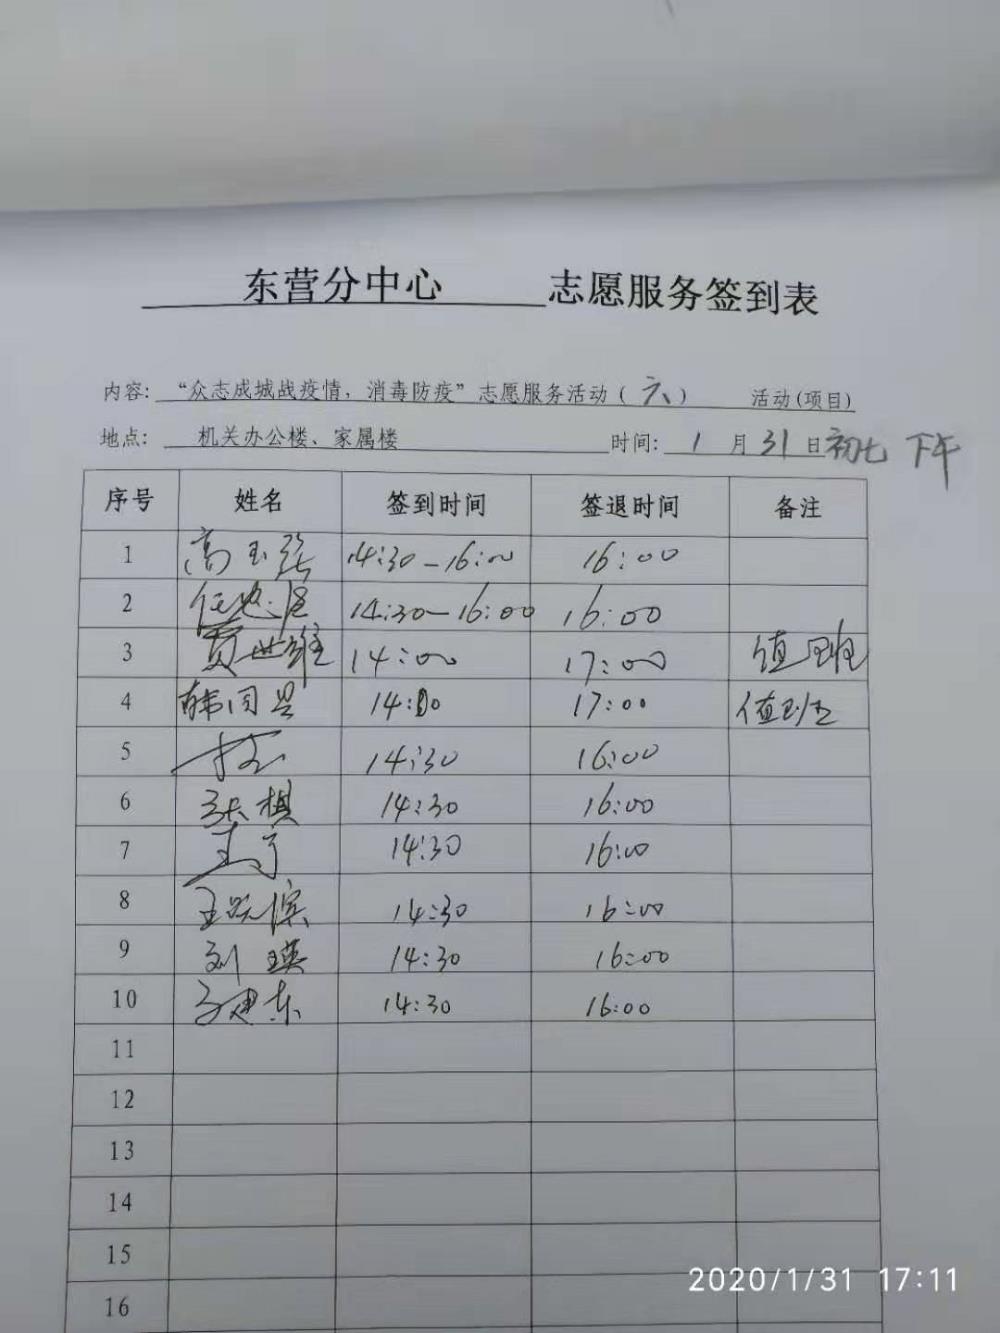 东营分中心 志愿服务签到表
内容: “众志成城战疫情，消毒防疫”志愿服务活动（六） 活动(项目)
地点: 机关办公楼、家属楼 时间: 1月31日初七 下午
序号 姓名 签到时间 签退时间 备注
1 高玉 14:30-16:00 16:00
2 任 14:30-16:00 16:00
3 贾世雄 14:00 17:00 值班
4 韩同 14:00 17:00 值班
5 14:30 16:00
6 张棋 14:30 16:00
7 14:30 16:00
8 王跃滨 14:30 16:00
9 刘瑛 14:30 16:00
10 建东 14:30 16:00
11
12
13
14
15
16
2020/1/31 17:11